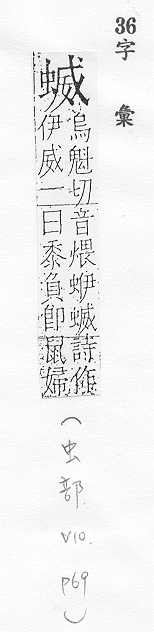 36 字彙
蝛
烏魁切音煨蛜蝛詩作
伊威一曰黍負即鼠婦
(虫部 V10. P69)